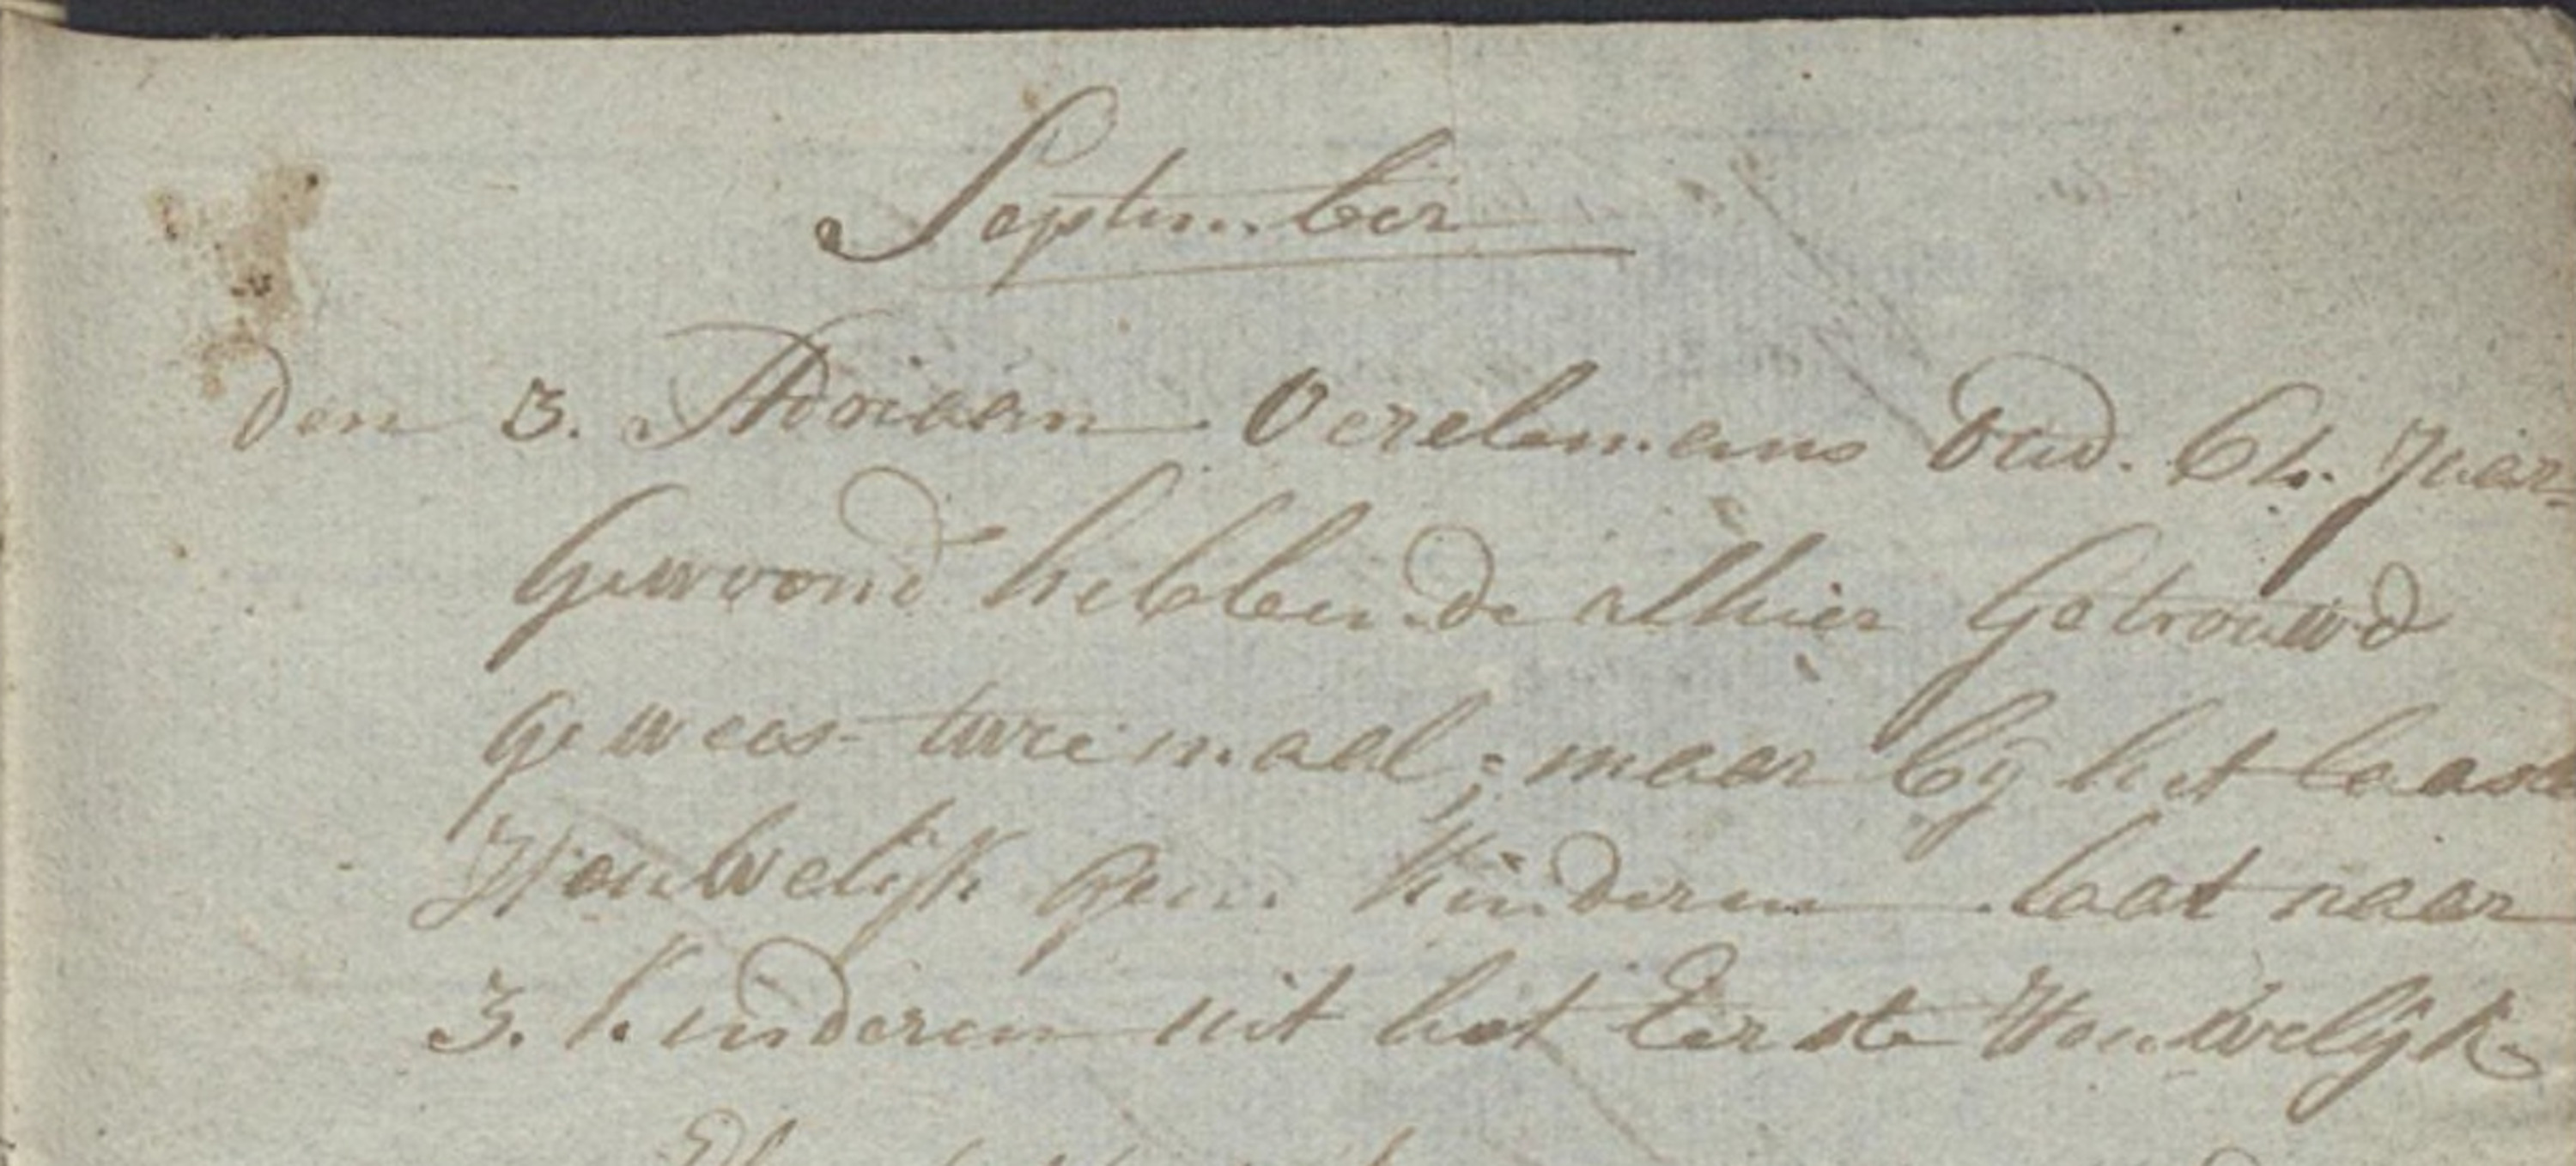 September
den 3. Adriaan Oerelemans Oud. 62. Jaar
Gewoond hebbende alhier Getrouwd
gewees twee maal; maar bij het laaste
Houwelijk geen kinderen laat naar
3. kinderen uit het Eerste Houwelijk